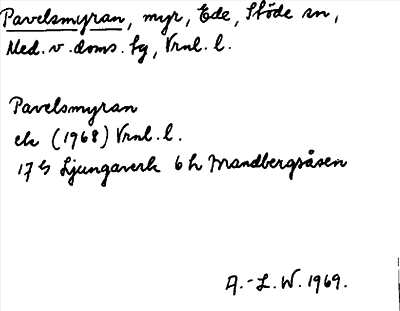 Pavelsmyran, myr, Ede, Stöde sn,
Med. v. doms. fg, Vrnl. l.
Pavelsmyran
ek (1968) Vrnl. l.
17 G Ljungaverk 6 h Mandbergsåsen
A.-L. W. 1969.